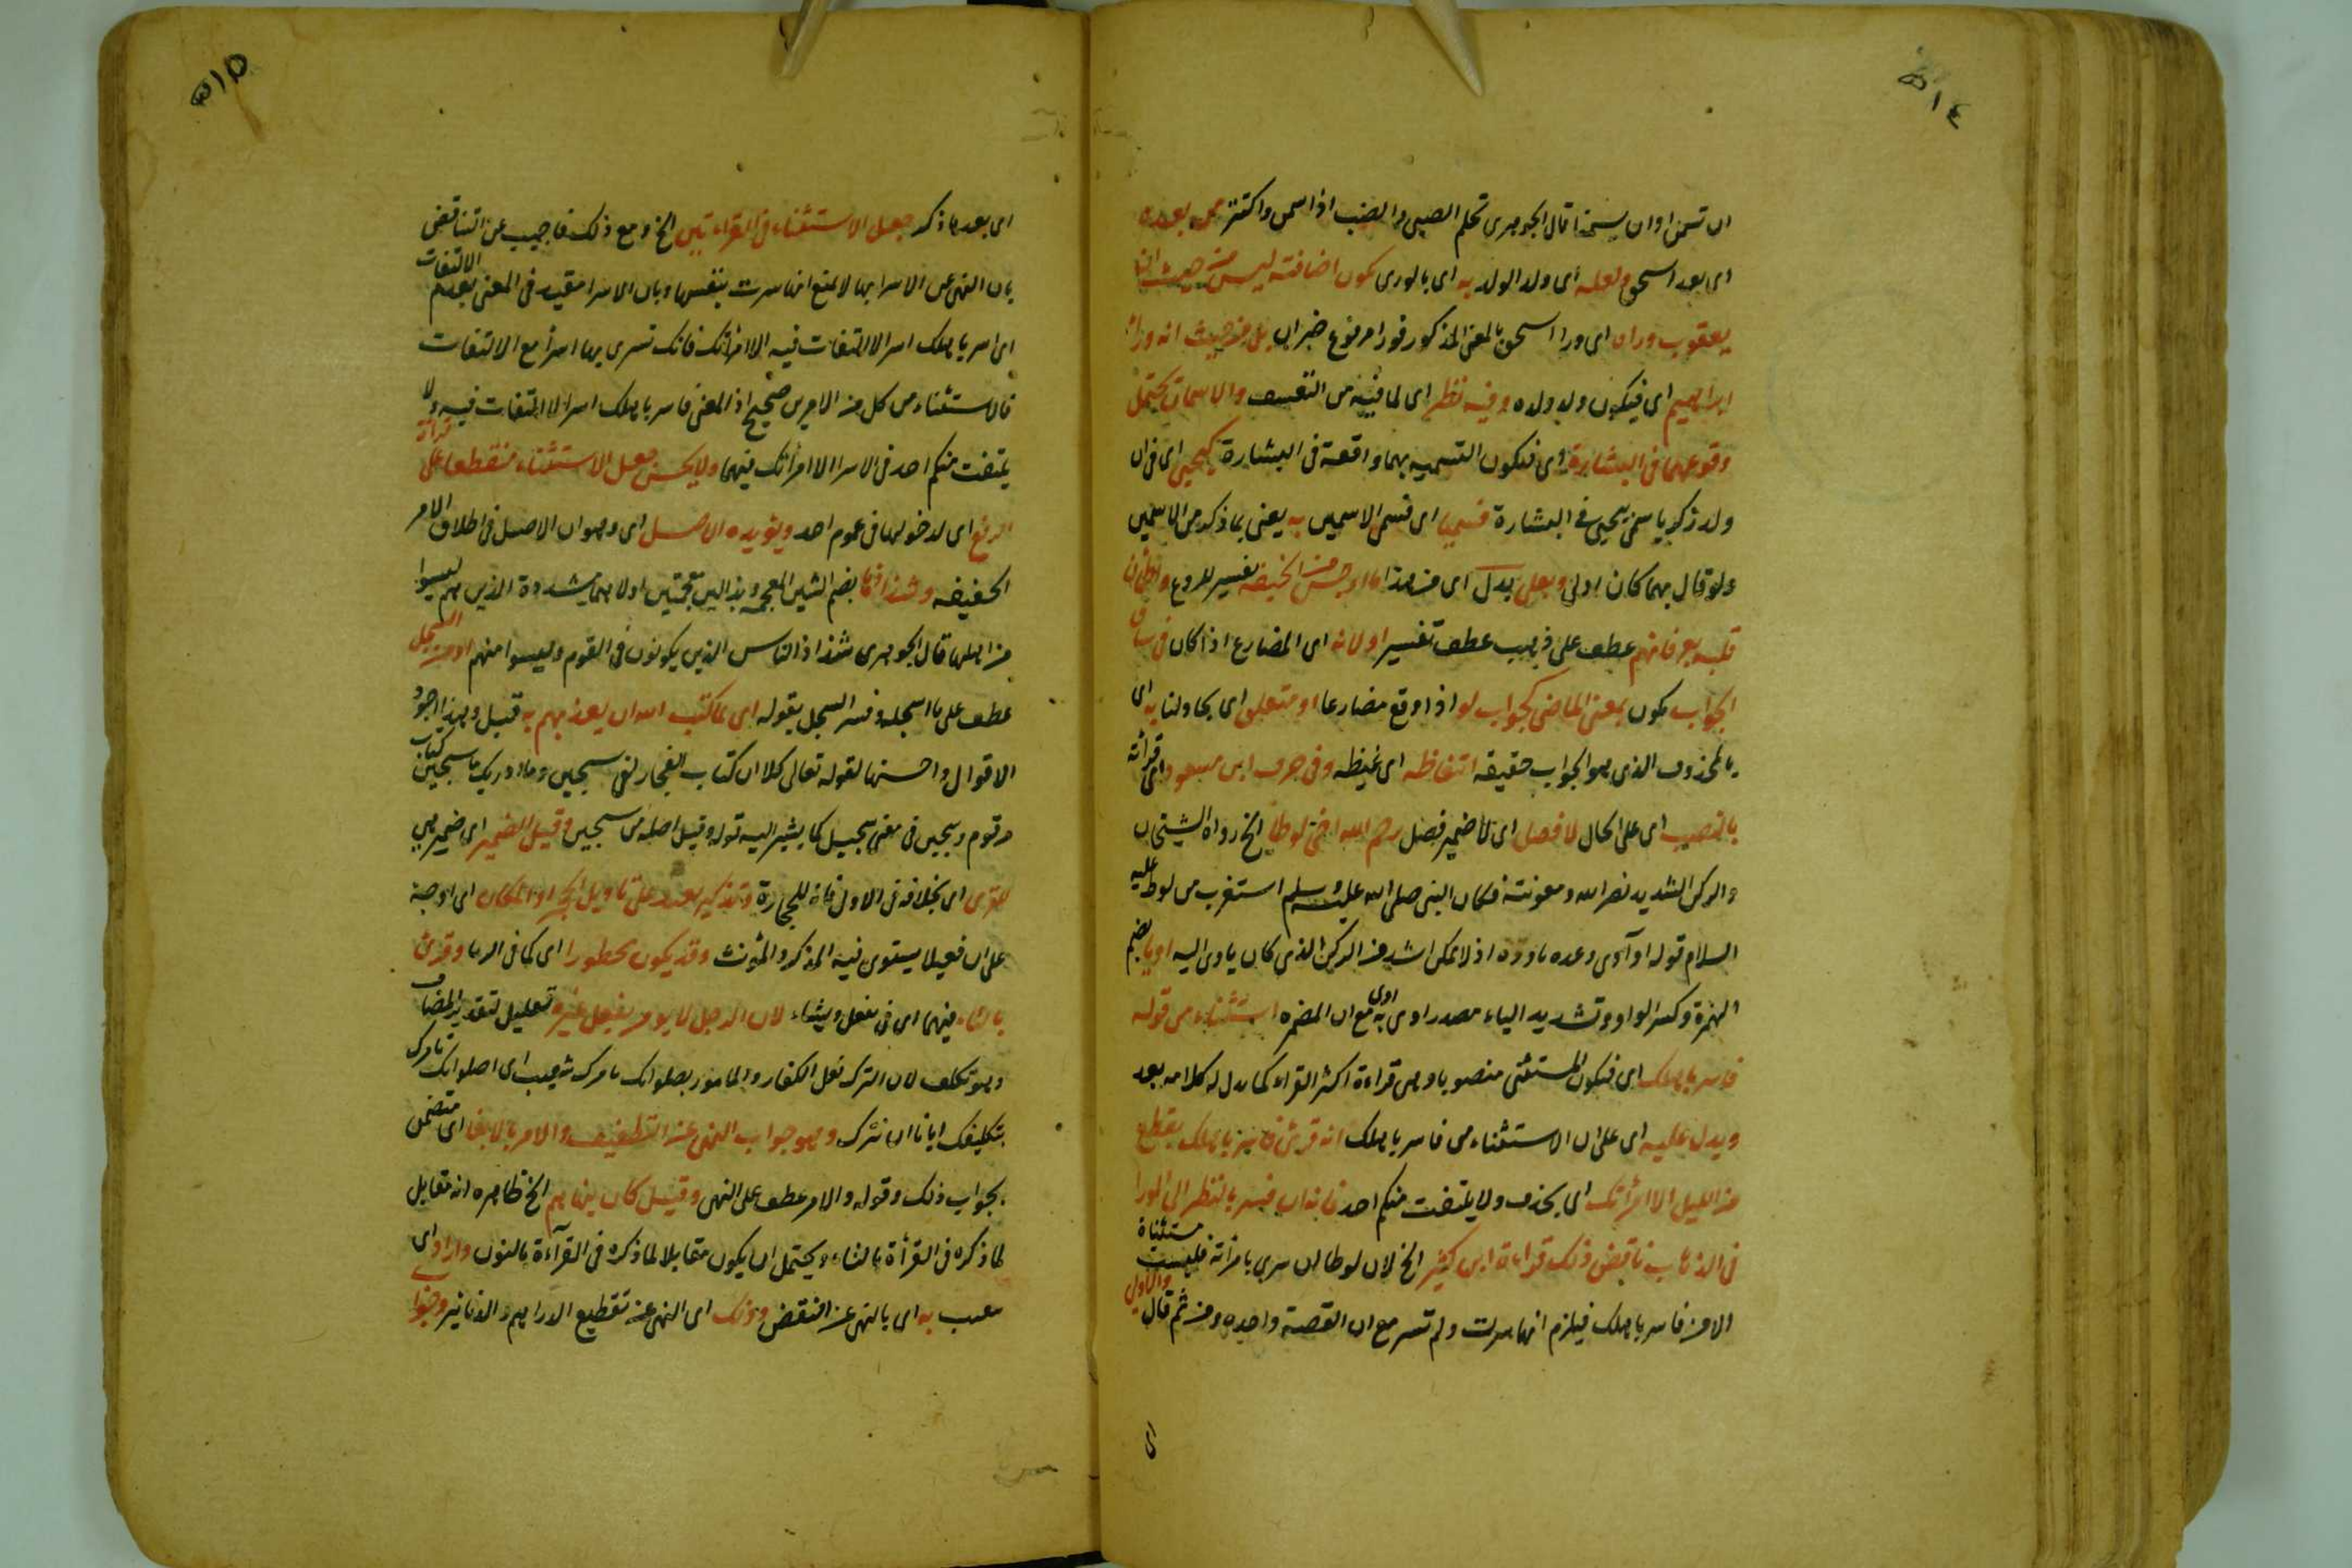 ٥١٤
ان تسمن اوان يسخنا قال الجوهرى تحلم الصبى والضب اذا سمن واكتنز من بعده
اى بعد اسحق ولعله اى ولد الولد به اى بالورى كون اضافته ليس من حيث ان
يعقوب وراه اى ورا اسحق بالمعنى المذكور فورا مرفوع خبر ان بل من حيث انه وراء
ابراهيم اى فيكون ولد ولده وفيه نظر اى لما فيه من التعسف والاسمان يحتمل
وقوعهما فى البشارة اى فتكون التسمية بهما واقعة فى البشارة كيحيى اى فى ان
ولد زكريا سمى بيحيى فى البشارة فسميا اى فسمى الاسمين به يعنى بما ذكر من الاسمين
ولو قال بهما كان اولى وبعلى بدل اى من هذا ما اوجس من الخيفة تفسير للروع واطمأن
قلبه بعرفانهم عطف على ذهب عطف تفسير اولانه اى المضارع اذا كان فى سياق
الجواب يكون بمعنى الماضى كجواب لو اذا وقع مضارعا او متعلق اى يجادلنا به اى
بالمحذوف الذى هو الجواب حقيقة اغتفاظه اى غيظه وفى حرف ابن مسعود اى قرأته
بالنصب اى على الحال لا فصل اى لا ضمير فصل رحم الله اخى لوطا الخ رواه الشيخان
والركن الشديد نصر الله ومعونته فكان النبى صلى الله عليه وسلم استغرب من لوط عليه
السلام قوله او آوى وعده نادرة اذ لا يمكن اشد من الركن الذى كان ياوى اليه اويا بضم
الهمزة وكسر الواو وتشديد الياء مصدر اوى به مع ان المضمره استثناء من قوله
فاسر باهلك اى فيكون المستثنى منصوبا وهى قراءة اكثر القراء كما يدل له كلامه بعد
ويدل عليه اى على ان الاستثناء من فاسر باهلك انه قرئ فاسر باهلك بقطع
من الليل الا امرأتك اى بحذف ولا يلتفت منكم احد فانه ان فسر بالنظر الى الورا
فى الذهاب ناقض ذلك قراءة ابن كثير الخ لان لوطا ان سرى بامرأته فليست مستثناة
الا من فاسر باهلك فيلزم انها سرت ولم تسر مع ان القصة واحده ومن ثم قال والاولى
اى
٥١٥
اى بعد ما ذكر جعل الاستثناء فى القراءتين الخ ومع ذلك فاجيب عن التناقض
بان النهى عن الاسرا بها لا يمنع انها سرت بنفسها وبان الاسرا مقيد فى المعنى بعدم الالتفات
اى اسر باهلك اسرا لا التفات فيه الا امرأتك فانك تسرى بها اسرأ مع الالتفات
فالاستثناء من كل من الامرين صحيح اذ المعنى فاسر باهلك اسرا لا التفات فيه ولا
يلتفت منكم احد فى الاسرا الا امرأتك فيهما ولا يحسن جعل الاستثناء منقطعا على قراءة
الرفع اى لدخولها فى عموم احد ويؤيده الاصل اى وهو ان الاصل فى اطلاق الامر
الحقيقه وشذاذها بضم الشين المعجمة وبذالين معجمتين اولاهما مشددة الذين هم ليسوا
من اهلها قال الجوهرى شذاذ الناس الذين يكونون فى القوم وليسوا منهم او من السجل
عطف على ما اسجله وفسر السجل بقوله اى مما كتب الله ان يعذبهم به قيل وهذا اجود
الاقوال واحسنها لقوله تعالى كلا ان كتاب الفجار لفى سجين وما ادريك ما سجين كتاب
مرقوم وسجين فى معنى سجيل كما يشير اليه قوله وقيل اصله من سجين وقيل الضمير اى ضمير هى
للقرى اى بخلافه فى الاول فانه للحجارة وتذكير بعيد على تاويل الحجر او المكان اى اوجه
على ان فعيلا يستوى فيه المذكر والمؤنث وقد يكون محظورا اى كما فى الربا وقرئ
بالتاء فيهما اى فى نفعل ونشاء لان الرجل لا يومر بفعل غيره تعليل لتقدير المضاف
وهو تكلف لان الترك فعل الكفار والمامور بصلوانك تامرك شعيب اى اصلوانك تامرك
بتكليفك ايانا ان نترك وهو جواب النهى عن التطفيف والامر بالايفا اى متضمن
بجواب ذلك وقوله والامر عطف على النهى وقيل كان ينهاهم الخ ظاهره انه مقابل
لما ذكره فى القرأة بالتاء ويحتمل ان يكون مقابلا لما ذكره فى القرآءة بالنون وارادوا اى
شعيب به اى بالنهى عن النقض وذلك اى النهى عن تقطيع الدراهم والدنانير وجوابا